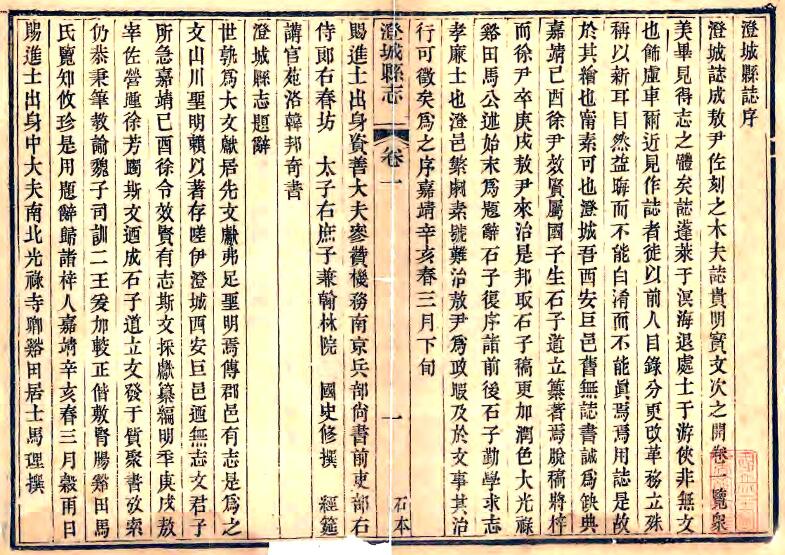 澄城縣誌序
澄城誌成敖尹佐刻之木夫誌貴明實文次之開卷一覽衆
美畢見得志之體矣誌蓬萊于溟海退處士于游俠非無文
也飾虛車爾近見作誌者徒以前人目錄分更改革務立殊
稱以新耳目然益聯而不能白淆而不能眞焉焉用誌是故
於其繪也甯素可也澄城吾西安巨邑舊無誌書誠為缺典
嘉靖己酉徐尹效賢屬國子生石子道立纂著焉脫稿將梓
而徐尹卒庚戌敖尹來治是邦取石子稿更加潤色大光祿
谿田馬公述始末為題辭石子復序諸前後石子勤學求志
孝廉士也澄邑繁劇素號難治敖尹為政暇及於文事其治
行可徵矣為之序嘉靖辛亥春三月下旬
澄城縣志
卷一
一
石本
賜進士出身資善大夫叅贊機務南京兵部尚書前吏部右
侍郎右春坊 太子右庶子兼翰林院 國史修撰 經筵
講官苑洛韓邦奇書
澄城縣志題辭
世孰為大文獻居先文獻弗足聖明焉傳郡邑有志是為之
文山川聖明賴以著存嗟伊澄城西安巨邑迺無志文君子
所急嘉靖己酉徐令效賢有志斯文採獻纂編明秊庚戌敖
宰佐營踵徐芳躅斯文迺成石子道立文發于質聚書攷索
仍恭秉筆教諭魏子司訓二王爰加較正偕敷腎腸谿田馬
氏覽知攸珍是用題辭歸諸梓人嘉靖辛亥春三月穀雨日
賜進士出身中大夫南北光祿寺卿谿田居士馬理撰